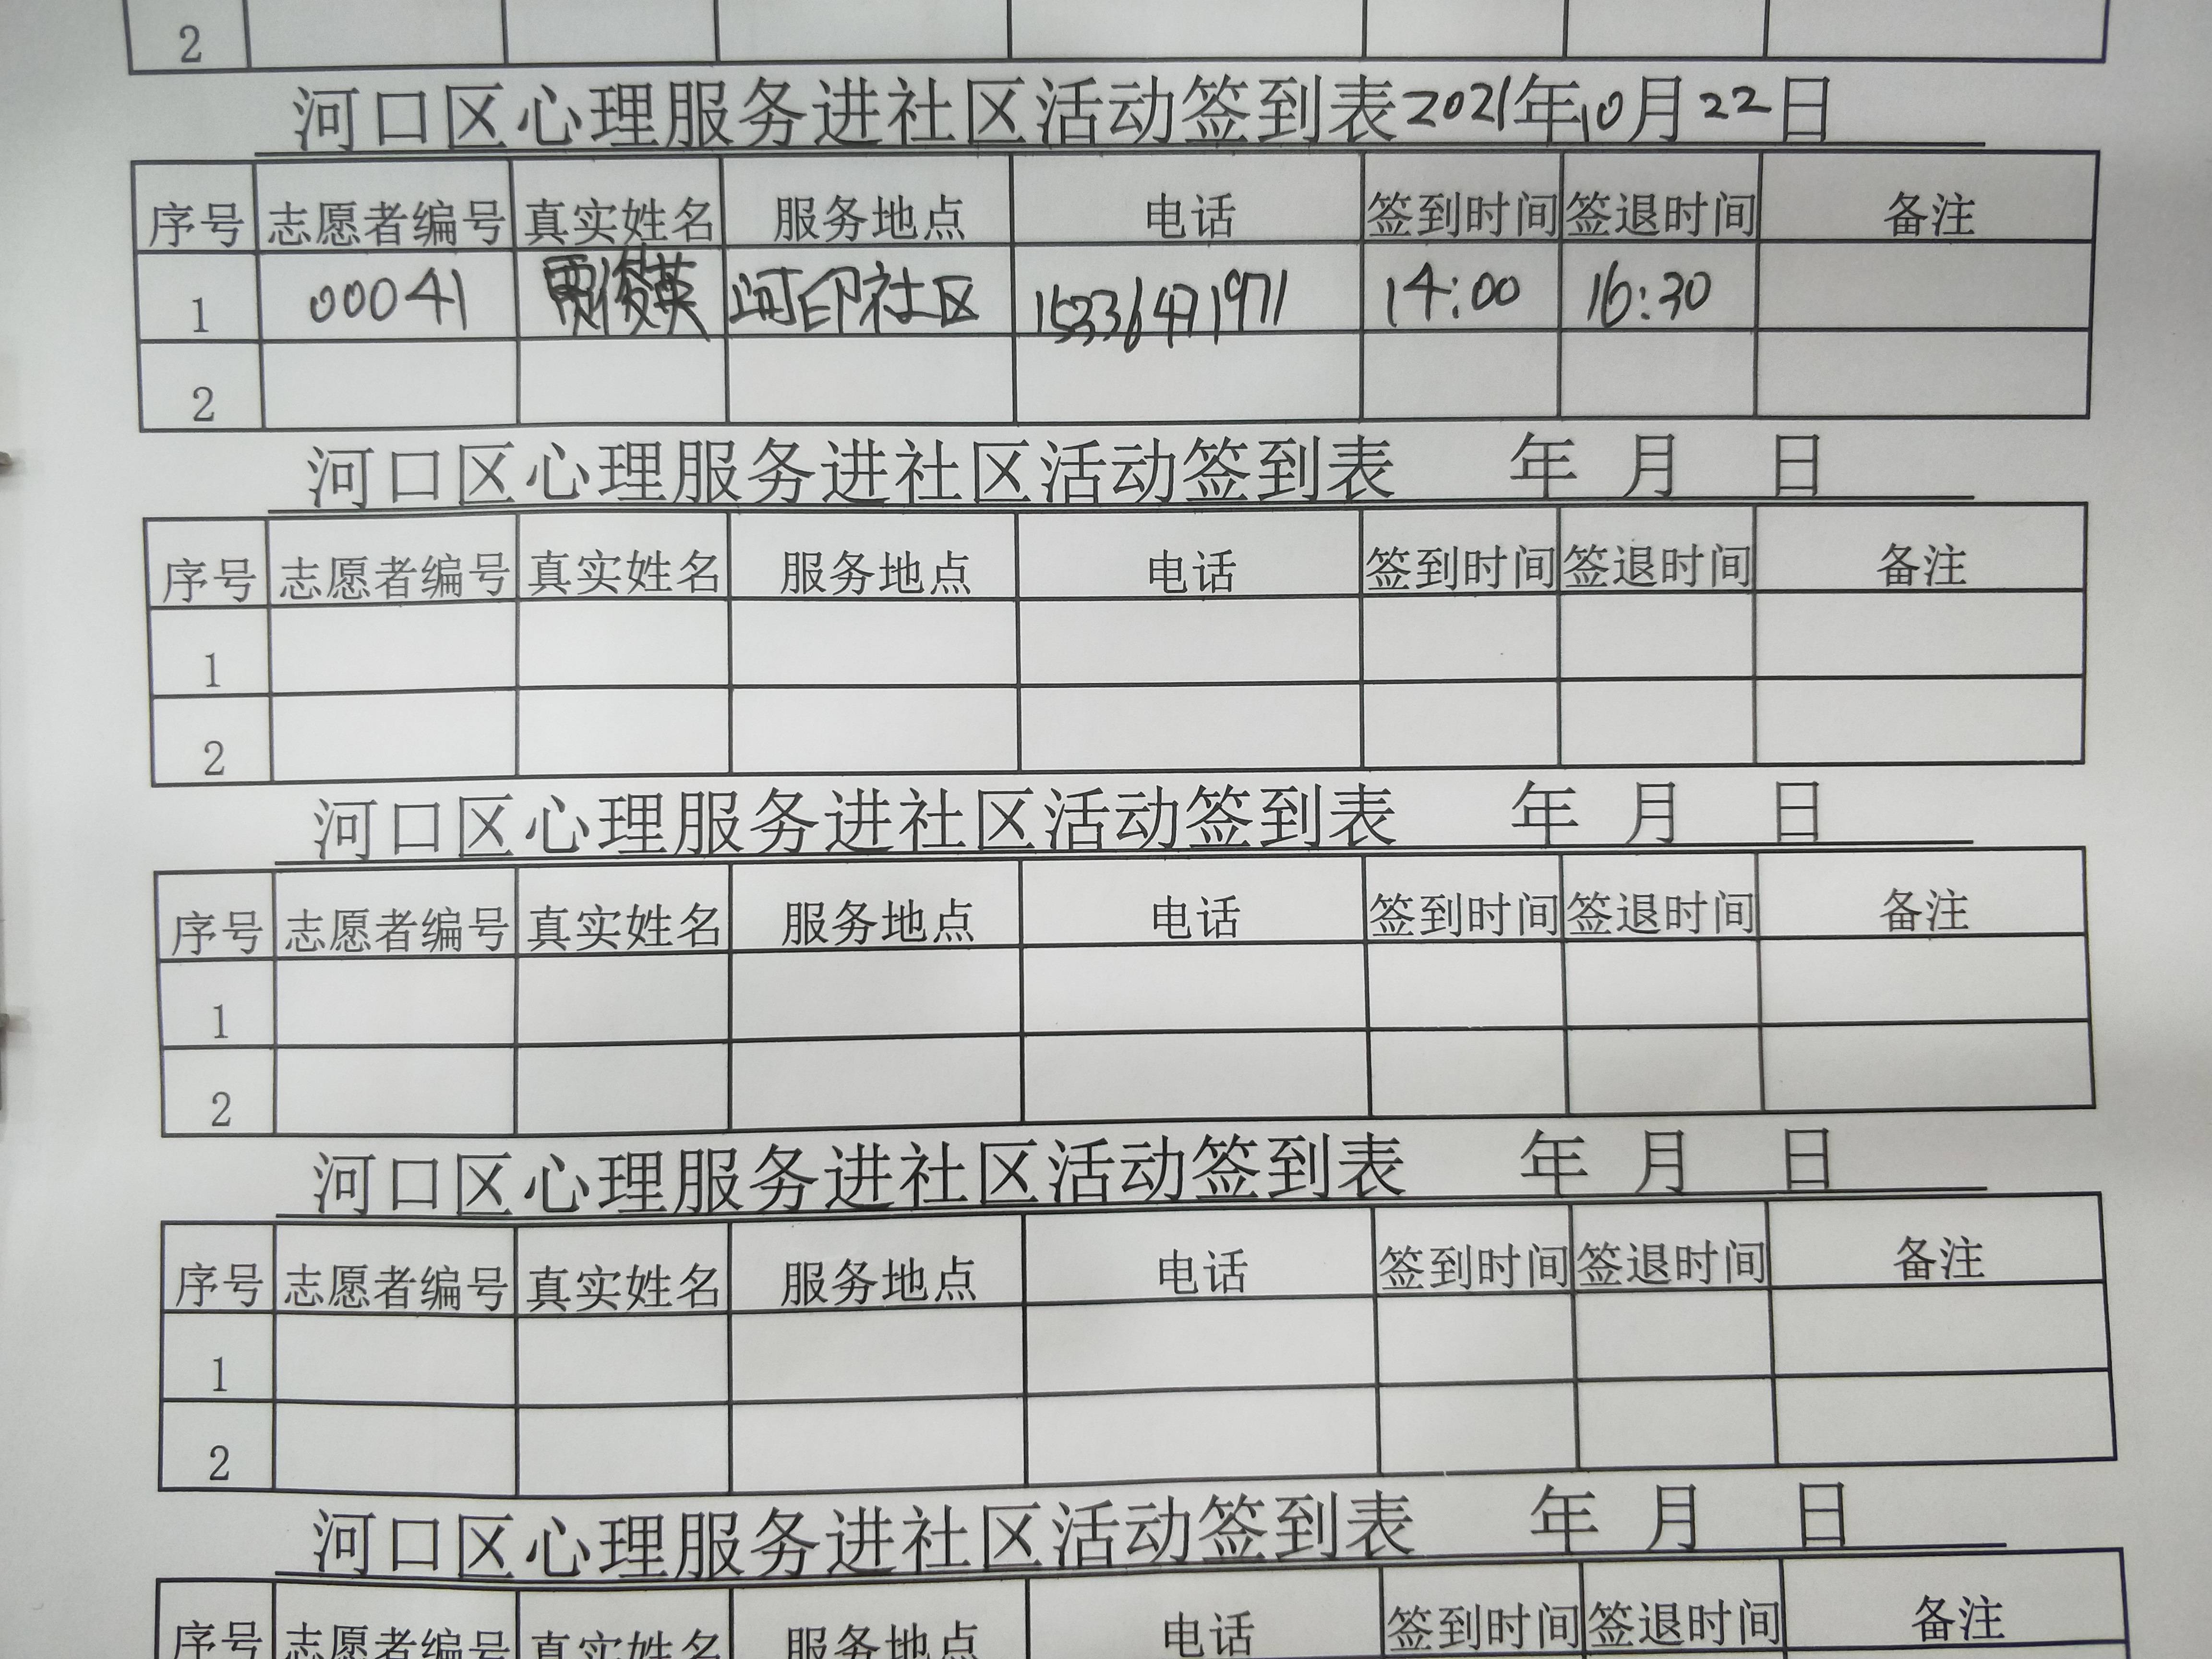 2
河口区心理服务进社区活动签到表2021年10月22日
序号 志愿者编号 真实姓名 服务地点 电话 签到时间 签退时间 备注
1 00041 贾俊英 河印社区 14:00 16:30
2
河口区心理服务进社区活动签到表 年 月 日
序号 志愿者编号 真实姓名 服务地点 电话 签到时间 签退时间 备注
1
2
河口区心理服务进社区活动签到表 年 月 日
序号 志愿者编号 真实姓名 服务地点 电话 签到时间 签退时间 备注
1
2
河口区心理服务进社区活动签到表 年 月 日
序号 志愿者编号 真实姓名 服务地点 电话 签到时间 签退时间 备注
1
2
河口区心理服务进社区活动签到表 年 月 日
序号 志愿者编号 真实姓名 服务地点 电话 签到时间 签退时间 备注